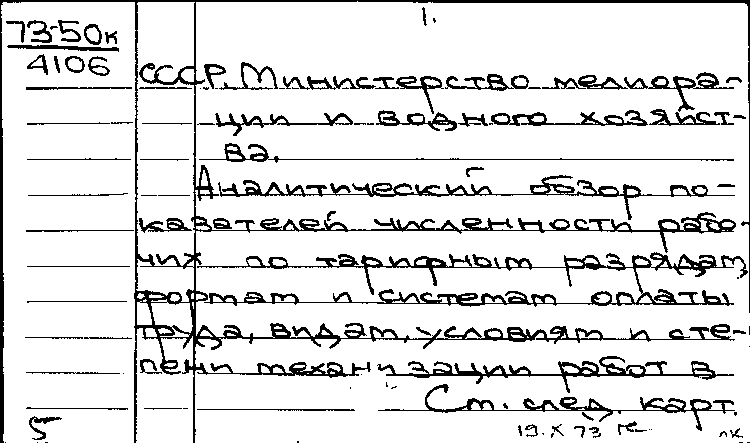 1.
73-50к
4106
СССР. Министерство мелиора-
ции и водного хозяйст-
ва.
Аналитический обзор по-
казателей численности рабо-
чих по тарифным разрядам,
формам и системам оплаты
труда, видам, условиям и сте-
пени механизации работ в
См. след. карт.
5
19.X 73
лк